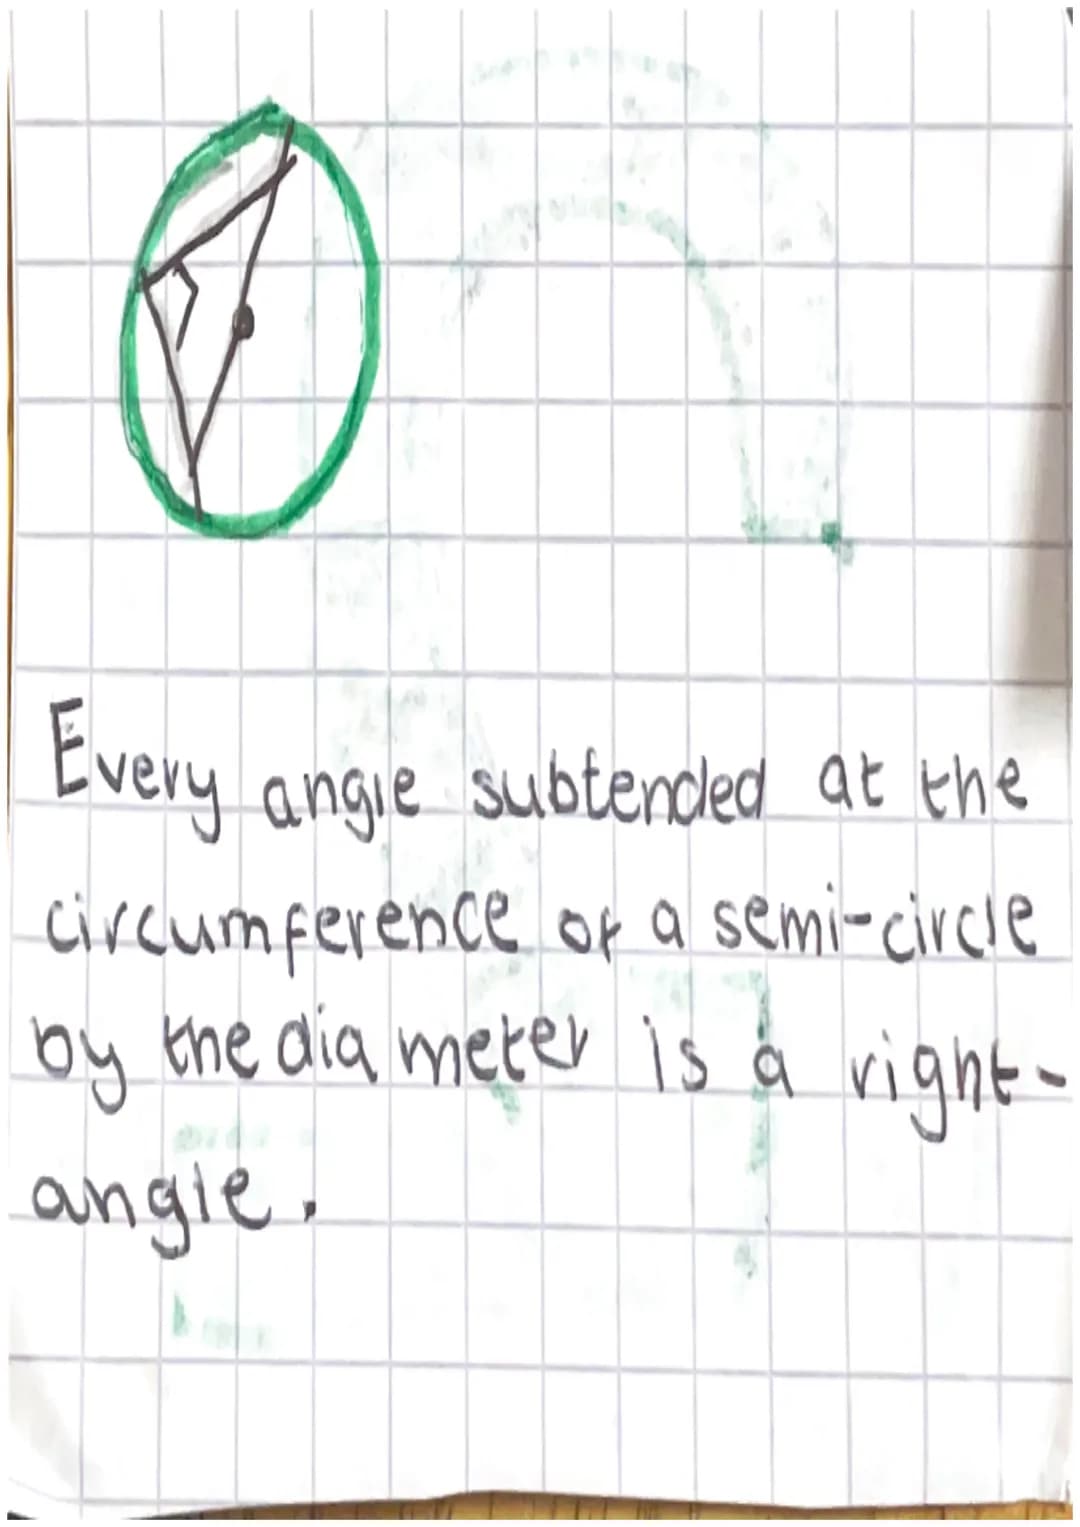 Every angle subtended at the
circumference of a semi-circle
by the diameter is a right-
angle.